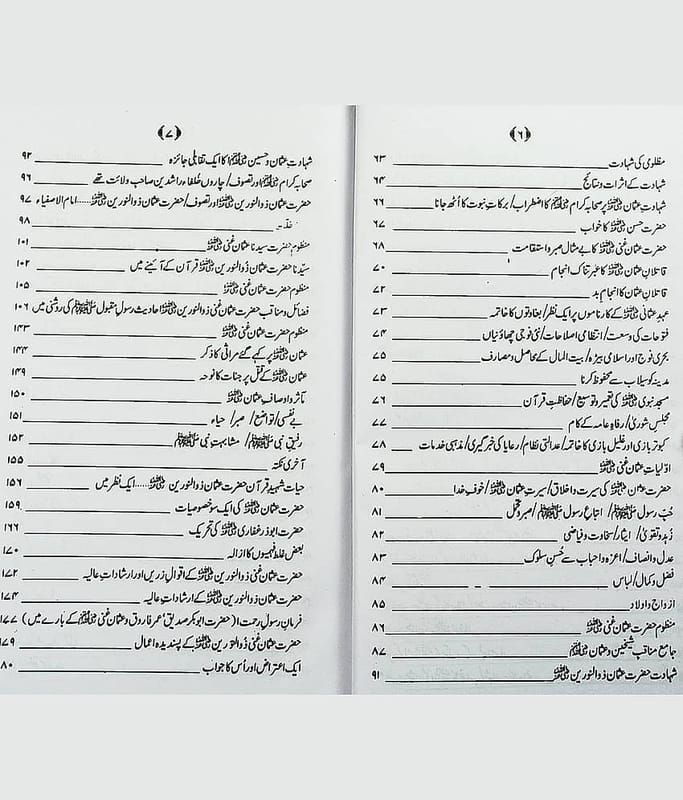 ﴿۶﴾
مظلومی کی شہادت ۶۳
شہادت کے اثرات و نتائج ۶۴
شہادتِ عثمان رضی اللہ عنہ پر صحابہ کرام رضی اللہ عنہم کا اضطراب/ برکاتِ نبوت کا اُٹھ جانا ۶۶
حضرت حسن رضی اللہ عنہ کا خواب ۶۷
حضرت عثمان غنی رضی اللہ عنہ کا بے مثال صبر و استقامت ۶۸
قاتلانِ عثمان رضی اللہ عنہ کا عبرتناک انجام ۷۰
قاتلانِ عثمان کا انجام بد ۷۲
عہدِ عثمانی رضی اللہ عنہ کے کارناموں پر ایک نظر/ بغاوتوں کا خاتمہ ۷۳
فتوحات کی وسعت/ انتظامی اصلاحات/ نئی فوجی چھاؤنیاں ۷۴
بحری فوج اور اسلامی بیڑہ/ بیت المال کے محاصل و مصارف ۷۵
مدینہ کو سیلاب سے محفوظ کرنا ۷۵
مسجد نبوی ﷺ کی تعمیر و توسیع/ حفاظتِ قرآن ۷۶
مجلسِ شوریٰ/ رفاہِ عامہ کے کام ۷۷
کبوتر بازی اور غلیل بازی کا خاتمہ/ عدالتی نظام/ رعایا کی خبر گیری/ مذہبی خدمات ۷۸
اوّلیاتِ عثمان غنی رضی اللہ عنہ ۷۹
حضرت عثمان رضی اللہ عنہ کی سیرت و اخلاق/ سیرتِ عثمان رضی اللہ عنہ/ خوفِ خدا ۸۰
حُبّ رسول ﷺ/ اتباعِ رسول ﷺ/ صبر و تحمل ۸۱
زہد و تقویٰ/ ایثار/ سخاوت و فیاضی ۸۲
عدل و انصاف/ اعزہ و احباب سے حُسنِ سلوک ۸۳
فضل و کمال/ لباس ۸۴
ازواج و اولاد ۸۵
منظوم حضرت عثمان غنی رضی اللہ عنہ ۸۶
جامع مناقب شیخین و عثمان رضی اللہ عنہم ۸۷
شہادت حضرت عثمان ذوالنورین رضی اللہ عنہ ۹۱
﴿۷﴾
شہادتِ عثمان و حسین رضی اللہ عنہم کا ایک تقابلی جائزہ ۹۲
صحابہ کرام رضی اللہ عنہم اور تصوف/ چاروں خلفاء راشدین صاحبِ ولایت تھے ۹۶
حضرت عثمان ذوالنورین رضی اللہ عنہ اور تصوف/ حضرت عثمان ذوالنورین رضی اللہ عنہ......امام الاصفیاء ۹۷
۹۸
منظوم حضرت سیدنا عثمان غنی رضی اللہ عنہ ۱۰۱
سیّدنا حضرت عثمان ذُوالنورین رضی اللہ عنہ قرآن کے آئینے میں ۱۰۲
منظوم حضرت عثمان غنی رضی اللہ عنہ ۱۰۵
فضائل و مناقب حضرت عثمان غنی ذوالنورین رضی اللہ عنہ احادیثِ رسولِ مقبول ﷺ کی روشنی میں ۱۰۶
منظوم حضرت عثمان غنی رضی اللہ عنہ ۱۴۳
عثمان رضی اللہ عنہ پر کہے گئے مراثی کا ذکر ۱۴۴
عثمان رضی اللہ عنہ کے قتل پر جنات کا نوحہ ۱۴۹
تأثر و اوصافِ عثمان رضی اللہ عنہ ۱۵۰
بے نفسی/ تواضع/ صبر/ حیاء ۱۵۱
رفیقِ نبی ﷺ/ مشابہتِ نبی ﷺ ۱۵۲
آخری نکتہ ۱۵۵
حیات شہیدِ قرآن حضرت عثمان ذوالنورین رضی اللہ عنہ......ایک نظر میں ۱۵۶
حضرت عثمان رضی اللہ عنہ کی ایک سو خصوصیات ۱۵۹
حضرت ابوذر غفاری رضی اللہ عنہ کی تحریک ۱۶۶
بعض غلط فہمیوں کا ازالہ ۱۷۰
حضرت عثمان غنی ذوالنورین رضی اللہ عنہ کے اقوالِ زریں اور ارشاداتِ عالیہ ۱۷۲
حضرت عثمان غنی ذوالنورین رضی اللہ عنہ کے ارشاداتِ عالیہ ۱۷۴
فرمانِ رسولِ رحمت (حضرت ابوبکر صدیق، عمر فاروق و عثمان غنی رضی اللہ عنہم کے بارے میں) ۱۷۷
حضرت عثمان غنی ذوالنورین رضی اللہ عنہ کے پسندیدہ اعمال ۱۷۹
ایک اعتراض اور اُس کا جواب ۸۰